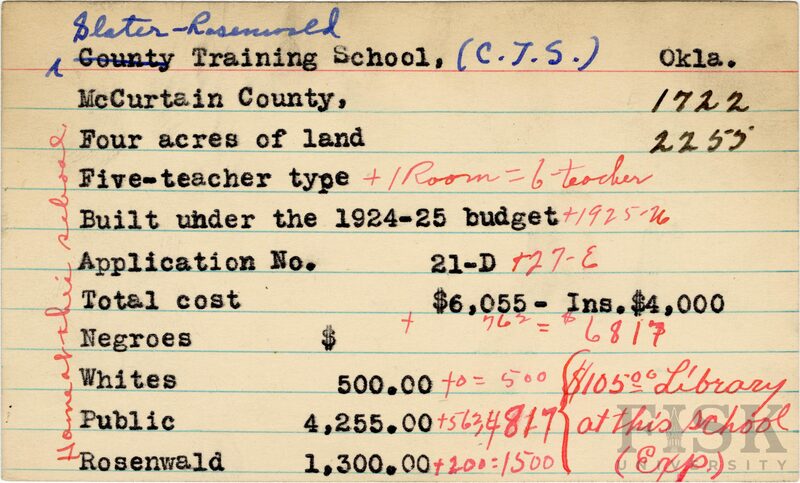 Slater-Rosenwald
County Training School, (C.T.S.) Okla.
McCurtain County, 1722
Four acres of land 2255
Five-teacher type +1 Room = 6 teacher
Built under the 1924-25 budget +1925-26
Application No. 21-D +27-E
Total cost $6,055- Ins.$4,000
+ 762 = $6817
Negroes $
Whites 500.00 +0 = 500 $105.00 Library
Public 4,255.00 +562 4817 at this School
Rosenwald 1,300.00 +200=1500 (Exp)
school
FISK
UNIVERSITY